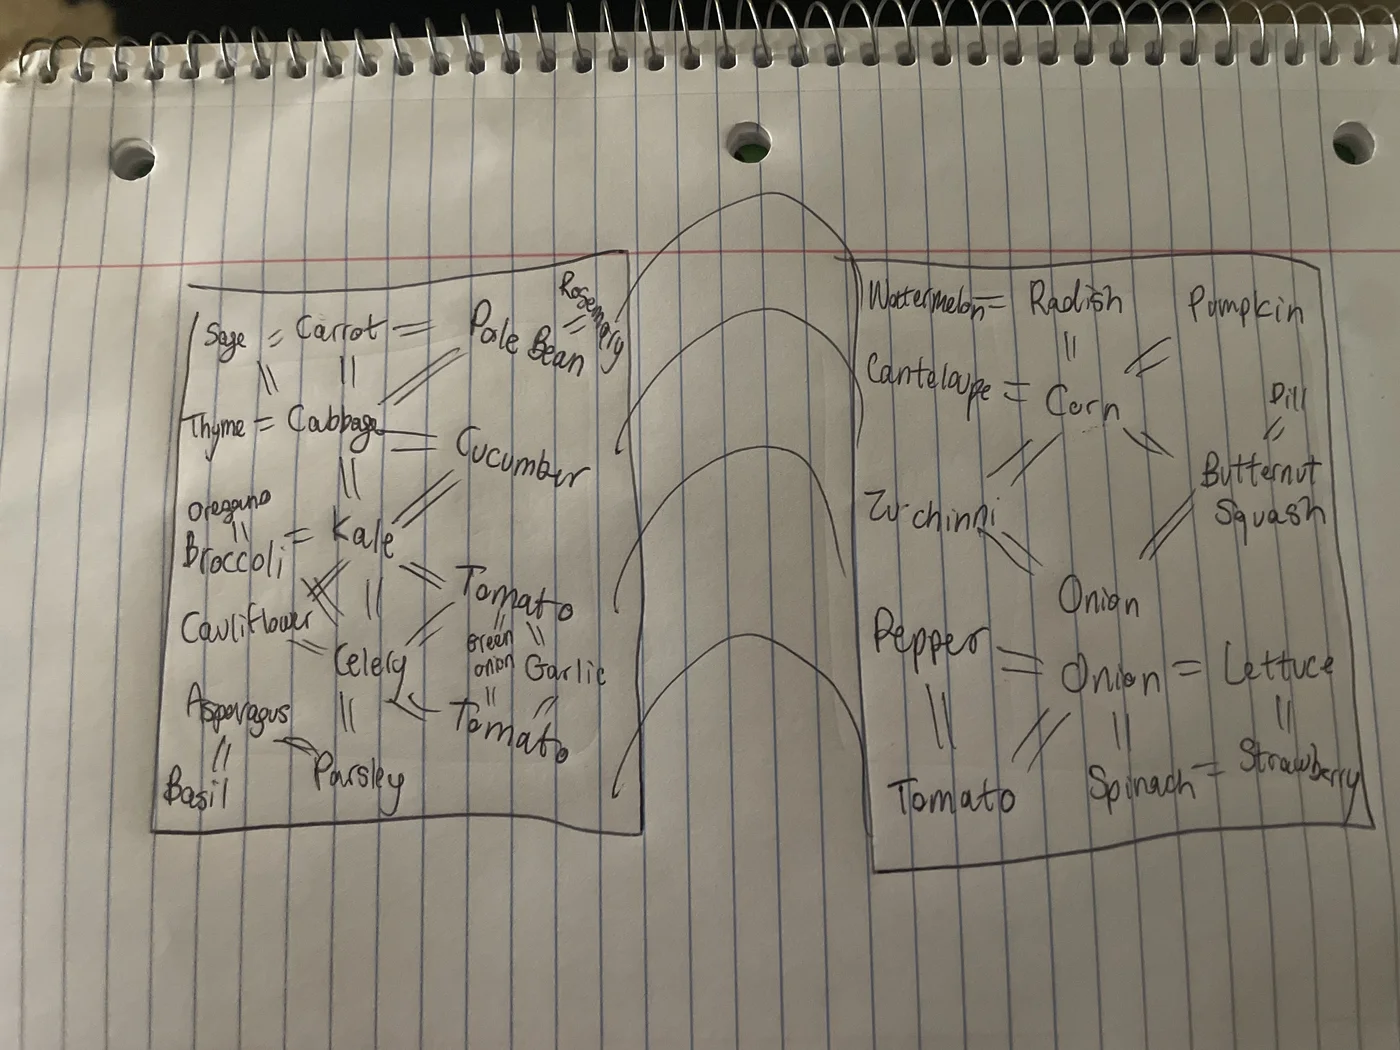 Sage = Carrot = Pole Bean
Rosemary
Thyme = Cabbage = Cucumber
Oregano
Broccoli = Kale
Tomato
Cauliflower
Celery
Green onion
Garlic
Asparagus
Tomato
Basil
Parsley
Watermelon = Radish
Pumpkin
Canteloupe = Corn
Dill
Butternut
Squash
Zuchinni
Onion
Pepper = Onion = Lettuce
Tomato
Spinach = Strawberry